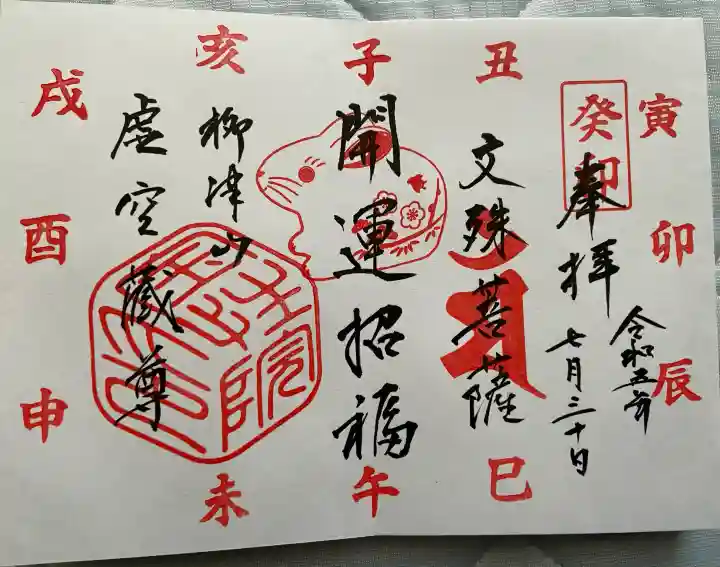 奉拝
令和五年
七月三十日
癸卯
文殊菩薩
開運招福
柳津山
虚空藏尊
子
丑
寅
卯
辰
巳
午
未
申
酉
戌
亥